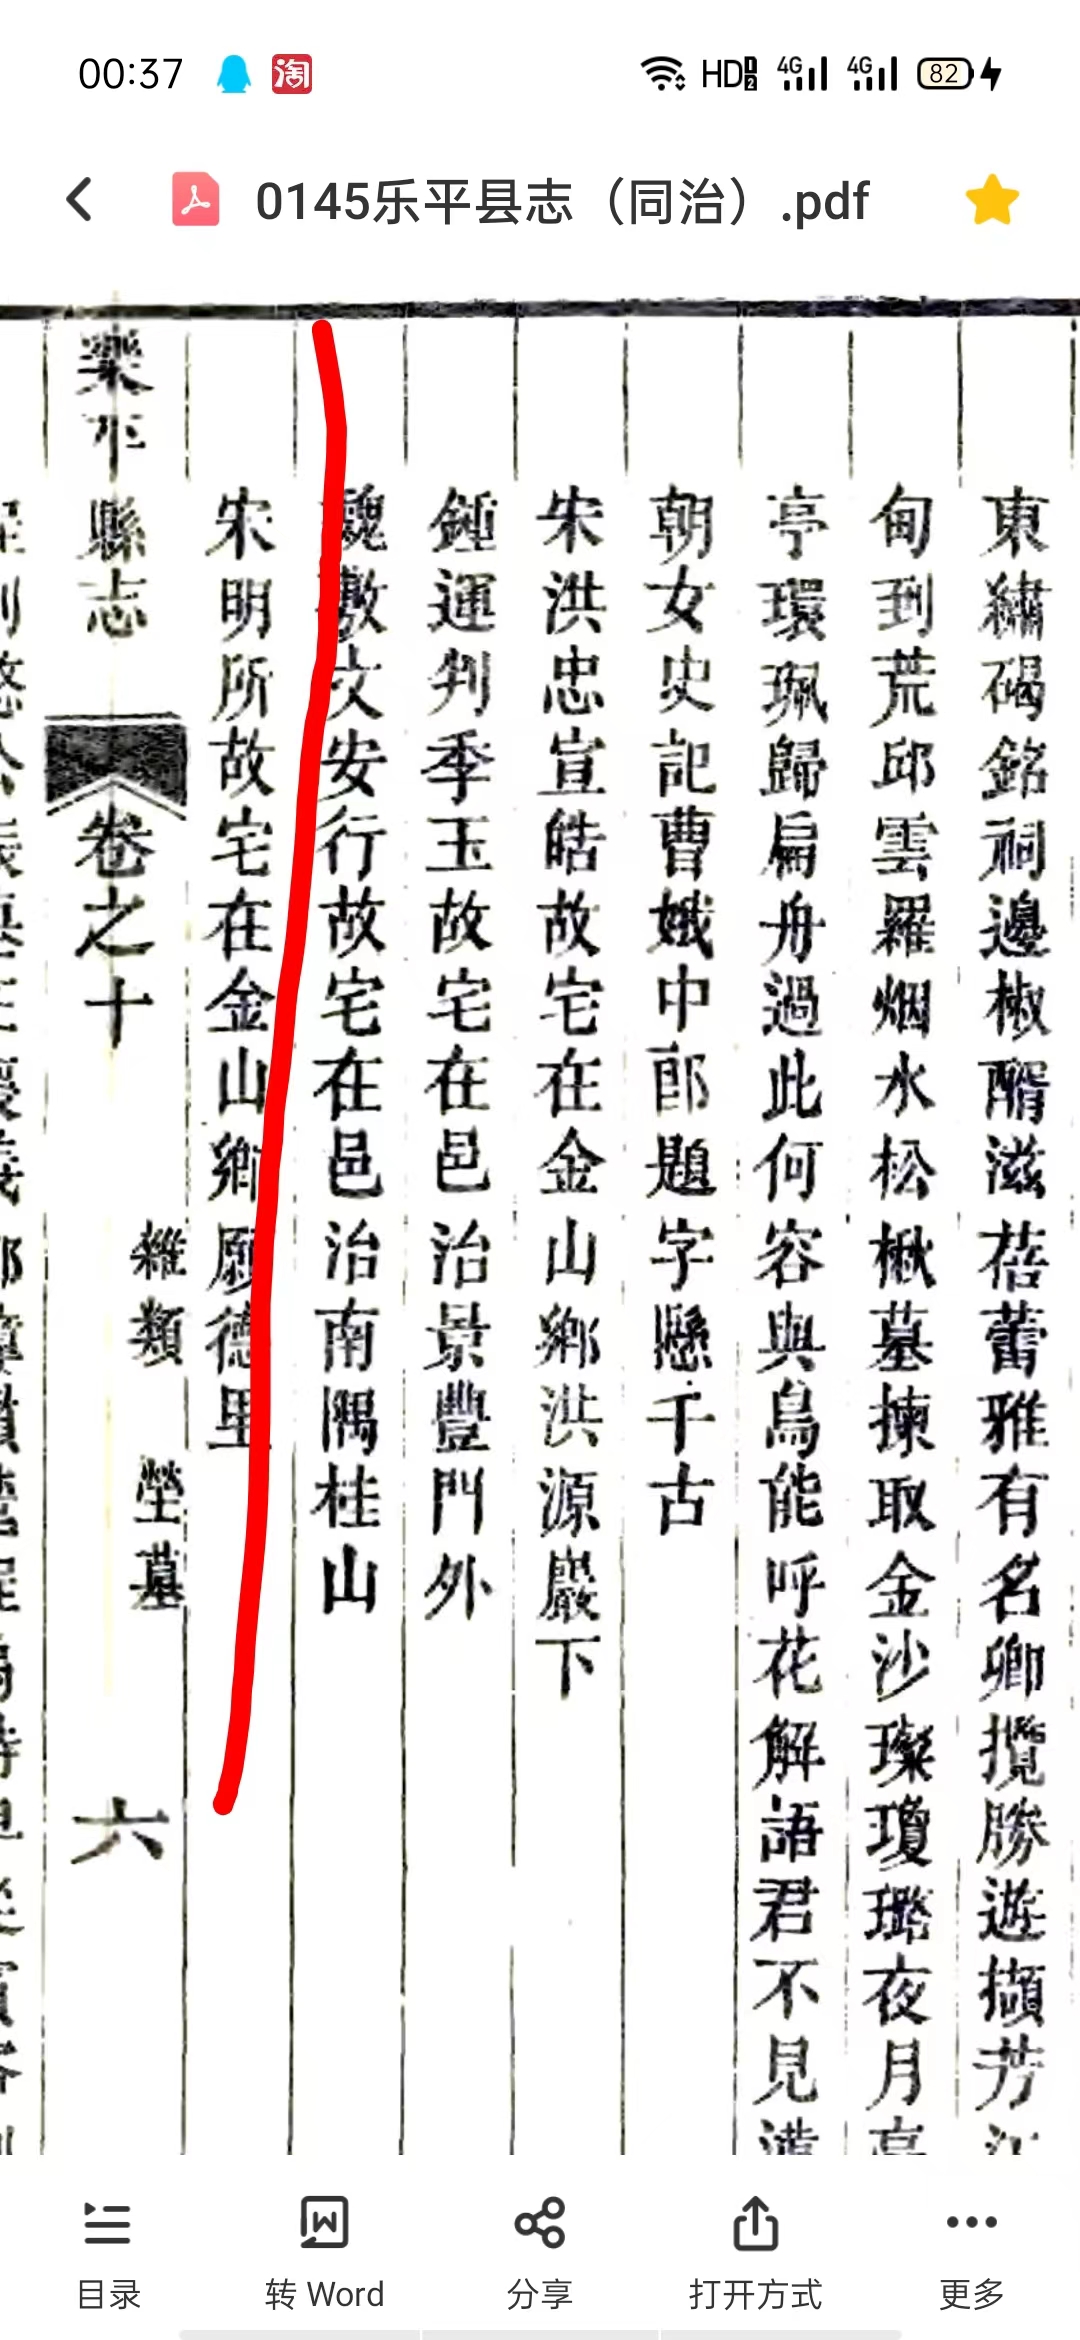 00:37
淘
HD 12
4G
4G
82
0145乐平县志（同治）.pdf
東繡碣銘祠邊椒醑滋蓓蕾雅有名卿攬勝遊擷芳
甸到荒邱雲羅烟水松楸墓揀取金沙璨瓊璐夜月
亭環珮歸扁舟過此何容與鳥能呼花解語君不見
朝女史記曹娥中郎題字懸千古
宋洪忠宣皓故宅在金山鄉洪源巖下
鍾運判季玉故宅在邑治景豐門外
魏敷文安行故宅在邑治南隅桂山
宋明所故宅在金山鄉願德里
樂平縣志
卷之十
雜類
塋墓
六
目录
转 Word
分享
打开方式
更多